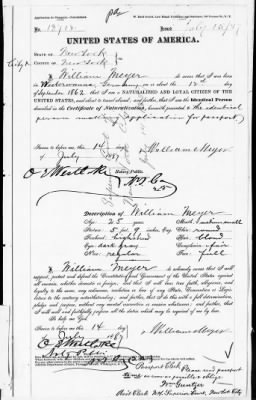 No. 12712
Issued July 15/87
UNITED STATES OF AMERICA.
STATE OF New York
COUNTY OF New York
I, William Meyer do swear that I was born
in Germany, on the 12
of September 1862 that I am a NATURALIZED AND LOYAL CITIZEN OF THE
UNITED STATES, and about to travel abroad; and further, that I am the Identical Person
described in the Certificate of Naturalization, herewith presented
person making application for passport
Sworn to before me, this 14 day
of July 1887
William Meyer
Notary Public
N.Y. Co
Description of William Meyer
Age: 25 years
Mouth: medium small
Stature: 5 feet 9 inches, Eng.
Chin: round
Hair: blond
Eyes: dark gray
Complexion: fair
Nose: regular
Face: full
I, William Meyer do solemnly swear that I will
support, protect and defend the Constitution and Government of the United States against
all enemies, whether domestic or foreign; and that I will bear true faith, allegiance and
loyalty to the same, any ordinance, resolution or law of any State, Convention or Legis-
lature to the contrary notwithstanding; and further, that I do this with a full determination,
pledge and purpose, without any mental reservation or evasion whatsoever; and further, that
I will well and faithfully perform all the duties which may be required of me by law.
So help me God.
Sworn to before me, this 14 day
of July 1887
William Meyer
Notary Public
N.Y. Co
Passport Clerk
Please send passport
as soon as possible & oblige
Passport Clerk N.Y. Superior Court, New York City